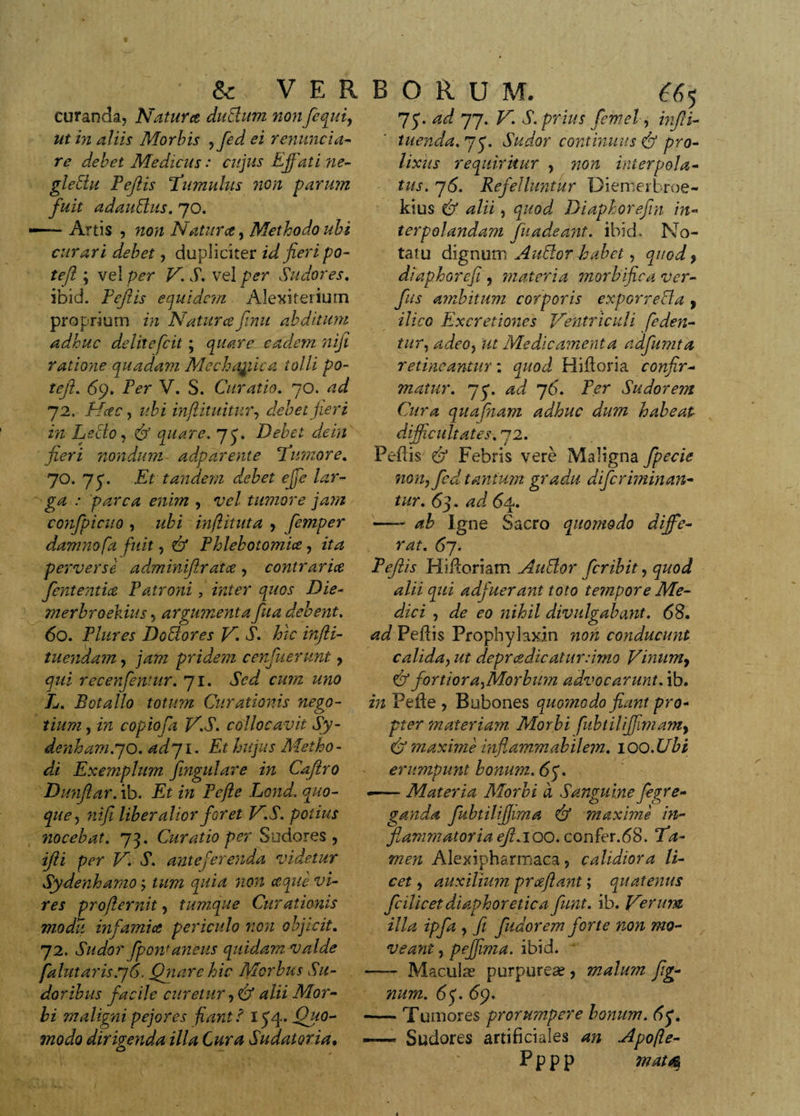 & VERBORUM. 665
curanda, Naturæ ductum non sequi,
ut in aliis Morbis , sed ei renuncia-
re debet Medicus : cujus Effati ne-
glectu Pestis Tumulus non parum
fuit adauctus. 70.
—— Artis , non Naturæ, Methodo ubi
curari debet, dupliciter id fieri po-
test ; vel per V. S. vel per Sudores.
ibid. Pestis equidem Alexiterium
proprium in Naturæ sinu abditum
adhuc delitescit ; quare eadem nisi
ratione quadam Mechanica tolli po-
test. 69. Per V. S. Curatio. 70. ad
72. Hæc, ubi instituitur, debet fieri
in Lecto, & quare. 75. Debet dein
fieri nondum adparente Tumore.
70. 75. Et tandem debet esse lar-
ga : parca enim , vel tumore jam
conspicuo , ubi instituta , semper
damnosa fuit, & Phlebotomiæ, ita
perverse administratæ , contrariæ
sententiæ Patroni , inter quos Die-
merbroekius, argumenta sua debent.
60. Plures Doctores V. S. hic insti-
tuendam, jam pridem censuerunt ,
qui recensentur. 71. Sed cum uno
L. Botallo totum Curationis nego-
tium, in copiosa V.S. collocavit Sy-
denham.70. ad71. Et hujus Metho-
di Exemplum singulare in Castro
Dunstar. ib. Et in Peste Lond. quo-
que, nisi liberalior foret V.S. potius
nocebat. 73. Curatio per Sudores ,
isti per V. S. anteferenda videtur
Sydenhamo ; tum quia non æque vi-
res prosternit, tumque Curationis
modu infamiæ periculo non objicit.
72. Sudor spontaneus quidam valde
salutaris.76. Quare hic Morbus Su-
doribus facile curetur, & alii Mor-
bi maligni pejores fiant ? 154. Quo-
modo dirigenda illa Cura Sudatoria.
75. ad 77. V. S. prius semel, insti-
tuenda. 75. Sudor continuus & pro-
lixus requiritur , non interpola-
tus. 76. Refelluntur Diemerbroe-
kius & alii, quod Diaphoresin in-
terpolandam suadeant. ibid. No-
tatu dignum Auctor habet, quod,
diaphoresi , materia morbifica ver-
sus ambitum corporis exporrecta ,
ilico Excretiones Ventriculi seden-
tur, adeo, ut Medicamenta adsumta
retineantur : quod Historia confir-
matur. 75. ad 76. Per Sudorem
Cura quasnam adhuc dum habeat
difficultates. 72.
Pestis & Febris verè Maligna specie
non, sed tantum gradu discriminan-
tur. 63. ad 64.
—— ab Igne Sacro quomodo diffe-
rat. 67.
Pestis Historiam Auctor scribit, quod
alii qui adfuerant toto tempore Me-
dici , de eo nihil divulgabant. 68.
ad Pestis Prophylaxin non conducunt
calida, ut deprædicaturimo Vinum,
& fortiora,Morbum advocarunt. ib.
in Peste , Bubones quomodo fiant pro-
pter materiam Morbi subtilissimam,
& maxime inflammabilem. 100. Ubi
erumpunt bonum. 65.
—— Materia Morbi à Sanguine segre-
ganda subtilissima & maxime in-
flammatoria est.100. confer.68. Ta-
men Alexipharmaca, calidiora li-
cet, auxilium præstant ; quatenus
scilicet diaphoretica sunt. ib. Verum
illa ipsa , si sudorem forte non mo-
veant, pessima. ibid.
—— Maculæ purpureæ, malum sig-
num. 65. 69.
—— Tumores prorumpere bonum. 65.
—— Sudores artificiales an Aposte-
Pppp mata